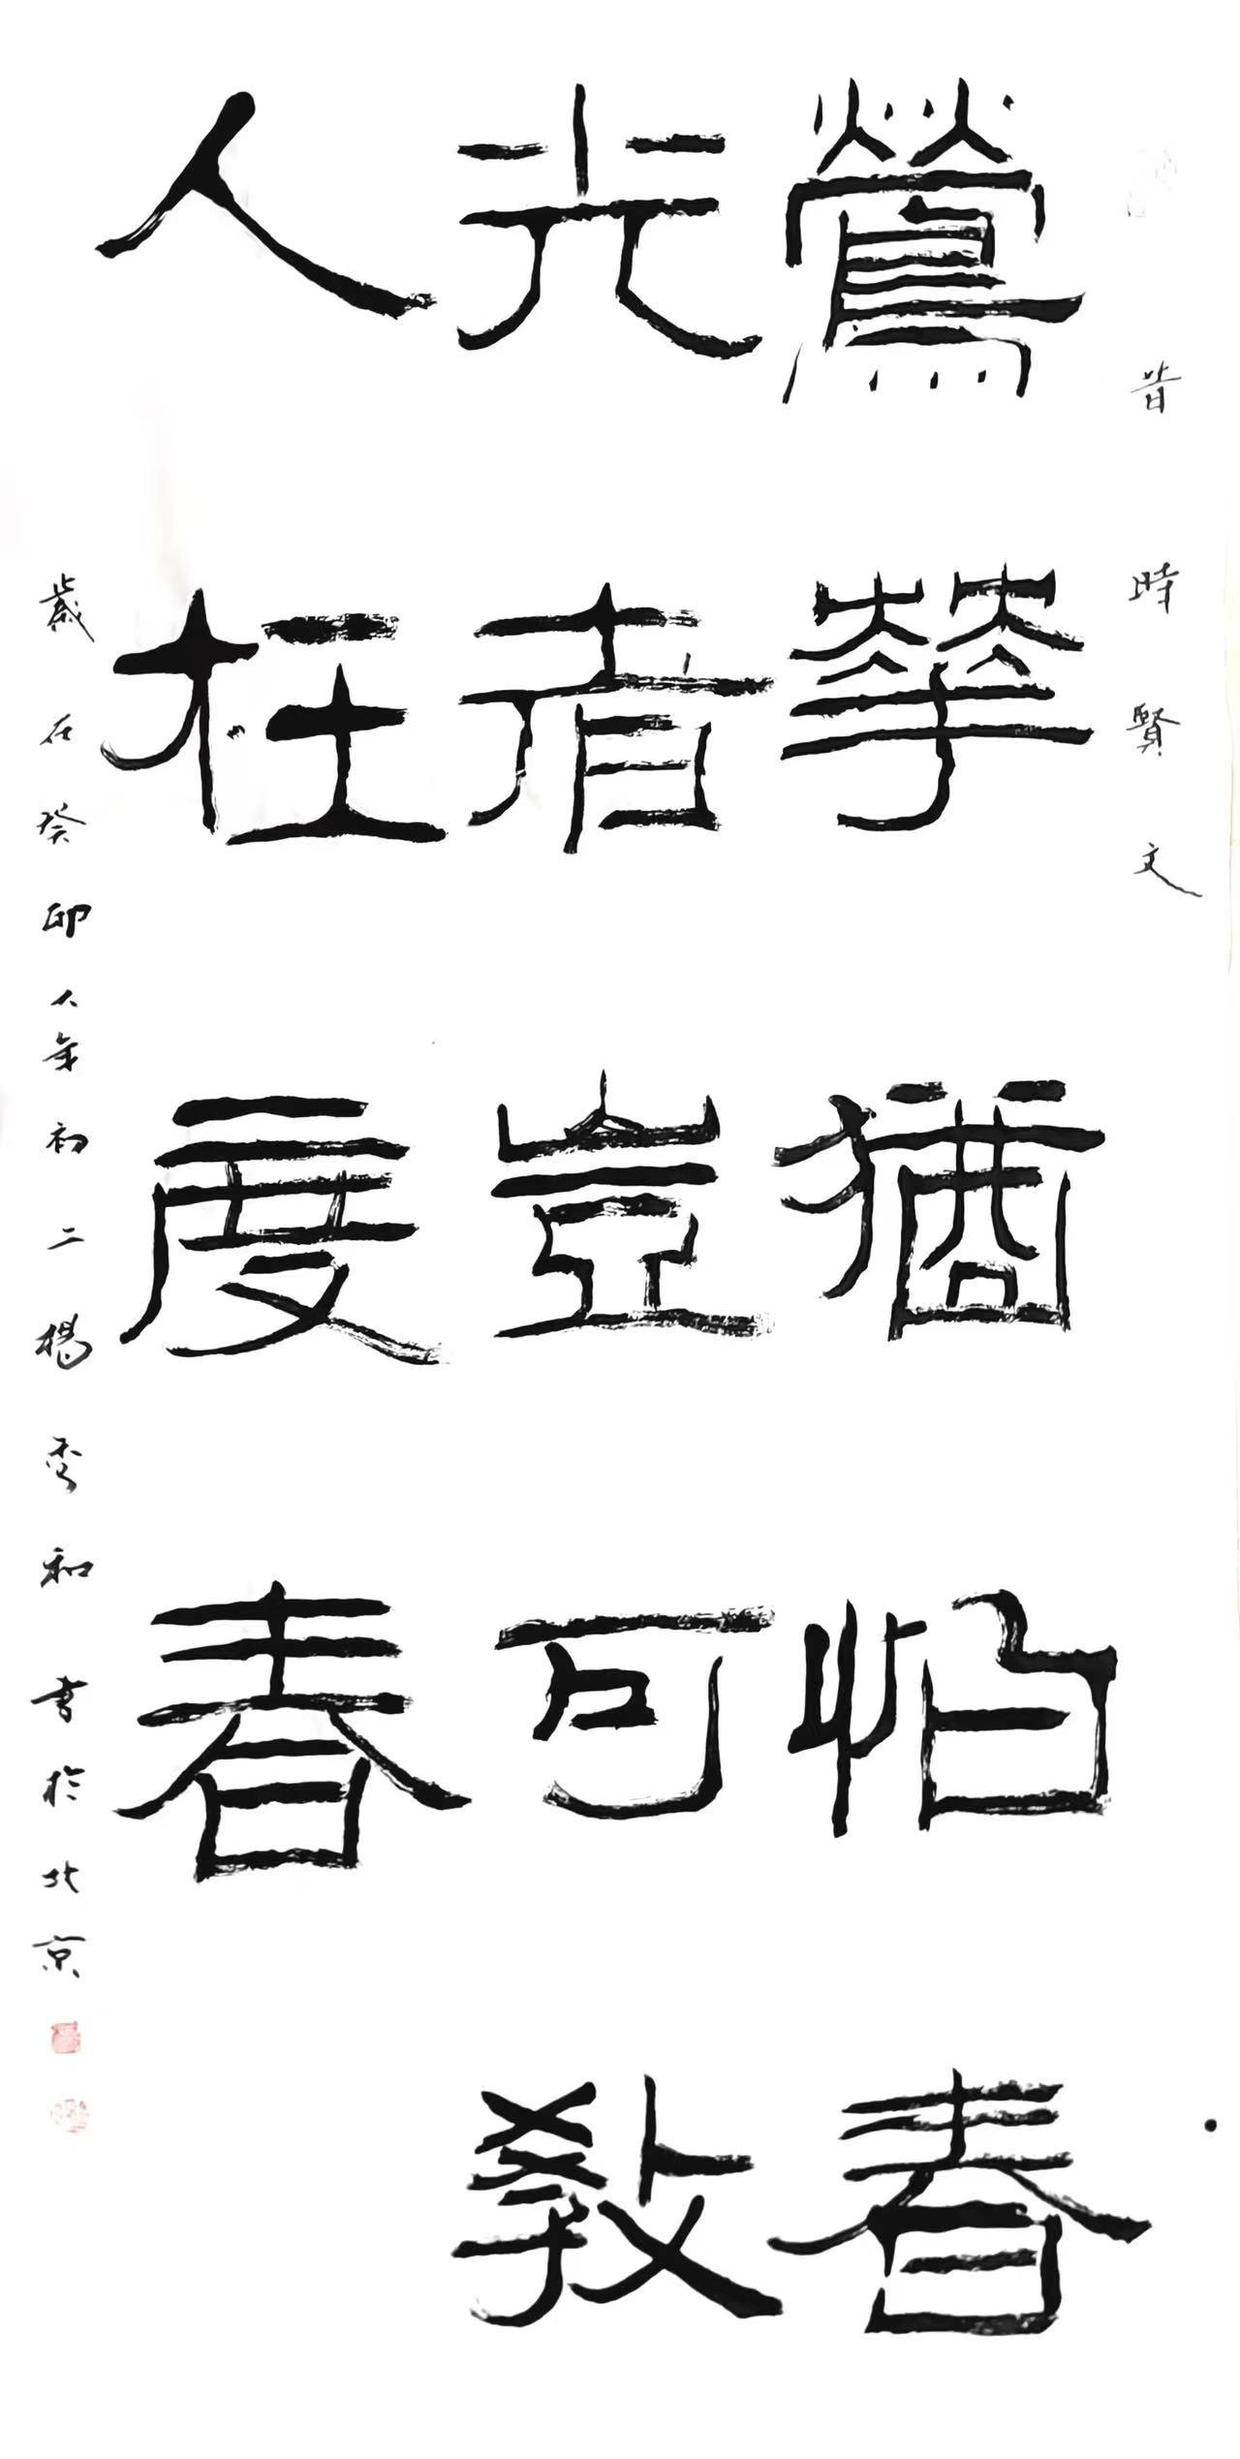 昔時賢文
鶯華猶怕春
光老豈可教
人枉度春
歲在癸卯大年初二楊秀和書於北京